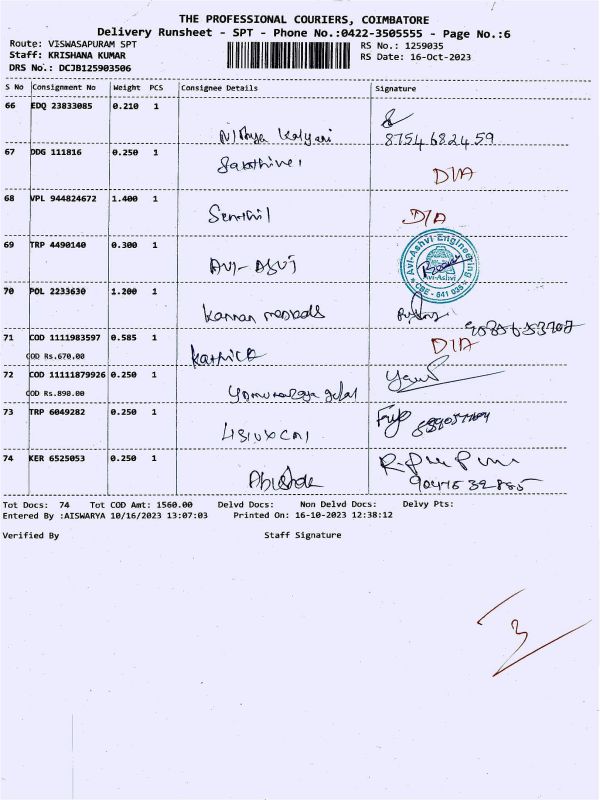 THE PROFESSIONAL COURIERS, COIMBATORE
Delivery Runsheet - SPT - Phone No.:0422-3505555 - Page No.:6
Route: VISWASAPURAM SPT RS No.: 1259035
Staff: KRISHANA KUMAR RS Date: 16-Oct-2023
DRS No.: DCJB125903506
S No Consignment No Weight PCS Consignee Details Signature
66 EDQ 23833085 0.210 1
Nithya Kalyani 8754682459
67 DDG 111816 0.250 1
D/A
68 VPL 944824672 1.400 1
Senthil D/A
69 TRP 4490140 0.300 1
AVI-ASVJ
Avi-Ashvi Engineering
Avi-Ashvi
CBE - 641 035
70 POL 2233630 1.200 1
Kannan
71 COD 1111983597 0.585 1
COD Rs.670.00 D/A
72 COD 11111879926 0.250 1
COD Rs.890.00
73 TRP 6049282 0.250 1
74 KER 6525053 0.250 1
Tot Docs: 74 Tot COD Amt: 1560.00 Delvd Docs: Non Delvd Docs: Delvy Pts:
Entered By :AISWARYA 10/16/2023 13:07:03 Printed On: 16-10-2023 12:38:12
Verified By Staff Signature
3